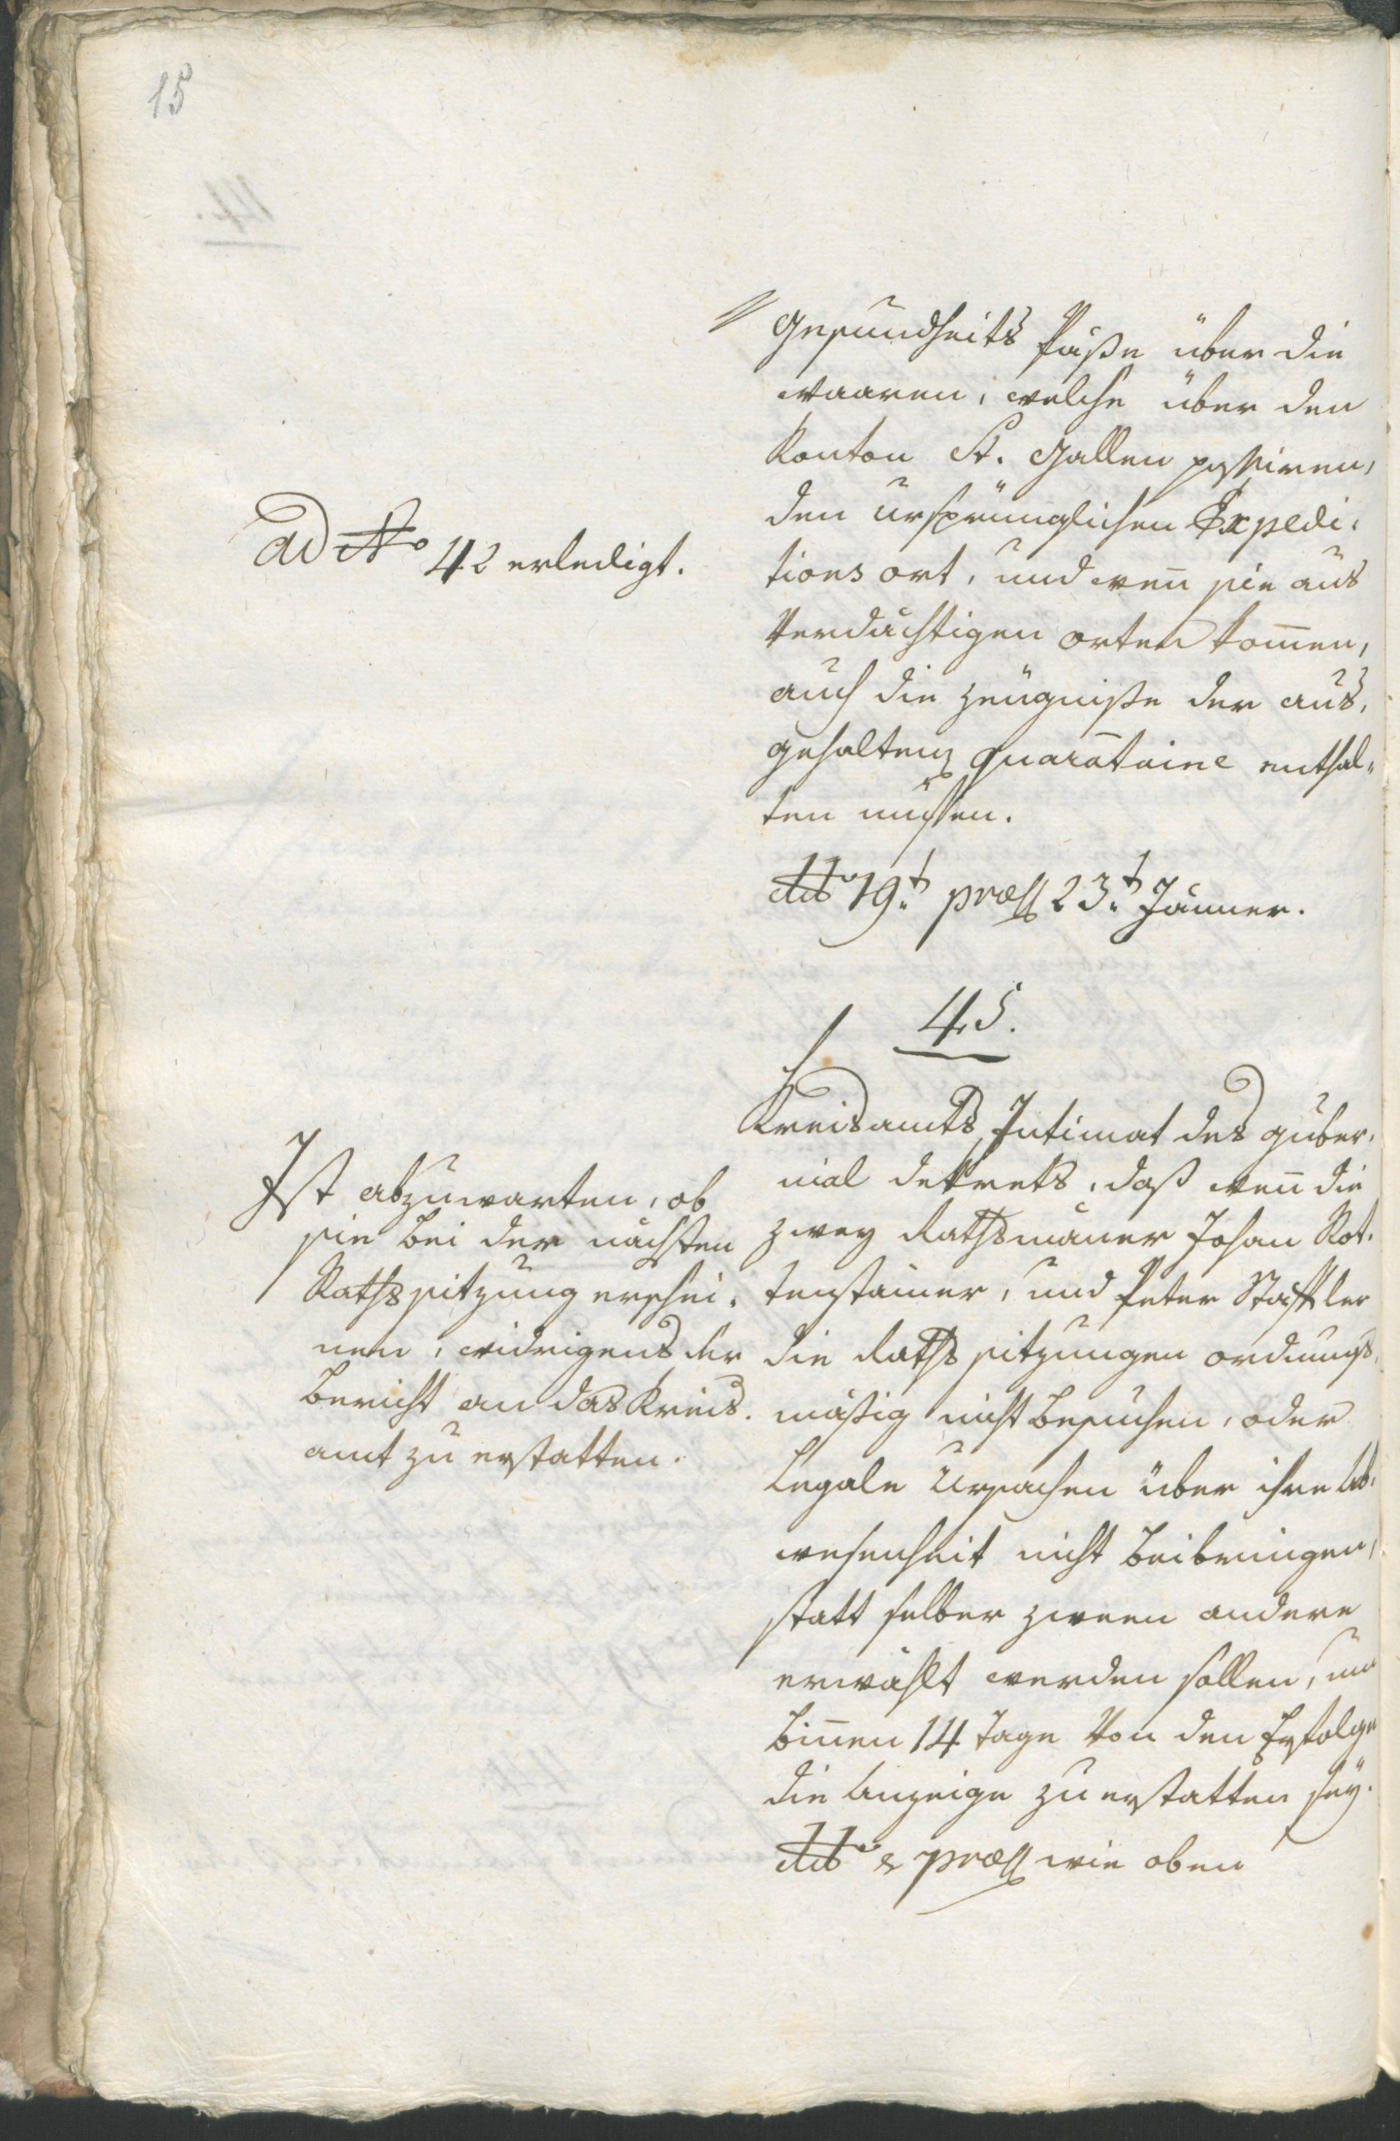 15
Gesundheits Päße über die
waaren, welche über den
Konton St. Gallen passiren,
den ursprünglichen Expedi-
tions ort, und weñ sie aus
Verdächtigen orten kom̄en,
auch die Zeugniße der aus-
gehaltenen quarātaine enthal-
ten müssen.
ad No 42 erledigt.
dto 19.t præs 23.t Jänner.
45.
Kreisamts Intimat des guber-
nial dekrets, daß weñ die
zwey Rathsmäner Johan Rot-
tenstainer, und Peter Staffler
die Raths sitzungen ordnungs-
mäßig nicht besuchen, oder
Legale Ursachen über ihre Ab-
wesenheit nicht beibringen,
statt selber zween andere
erwählt werden sollen, und
biñen 14 Tage Von den Erfolge
die Anzeige zu erstatten sey.
dto & præs wie oben
Ist abzuwarten, ob
sie bei der nächsten
Rathssitzung erschei-
nen, widrigens der
Bericht an das Kreis-
amt zu erstatten.